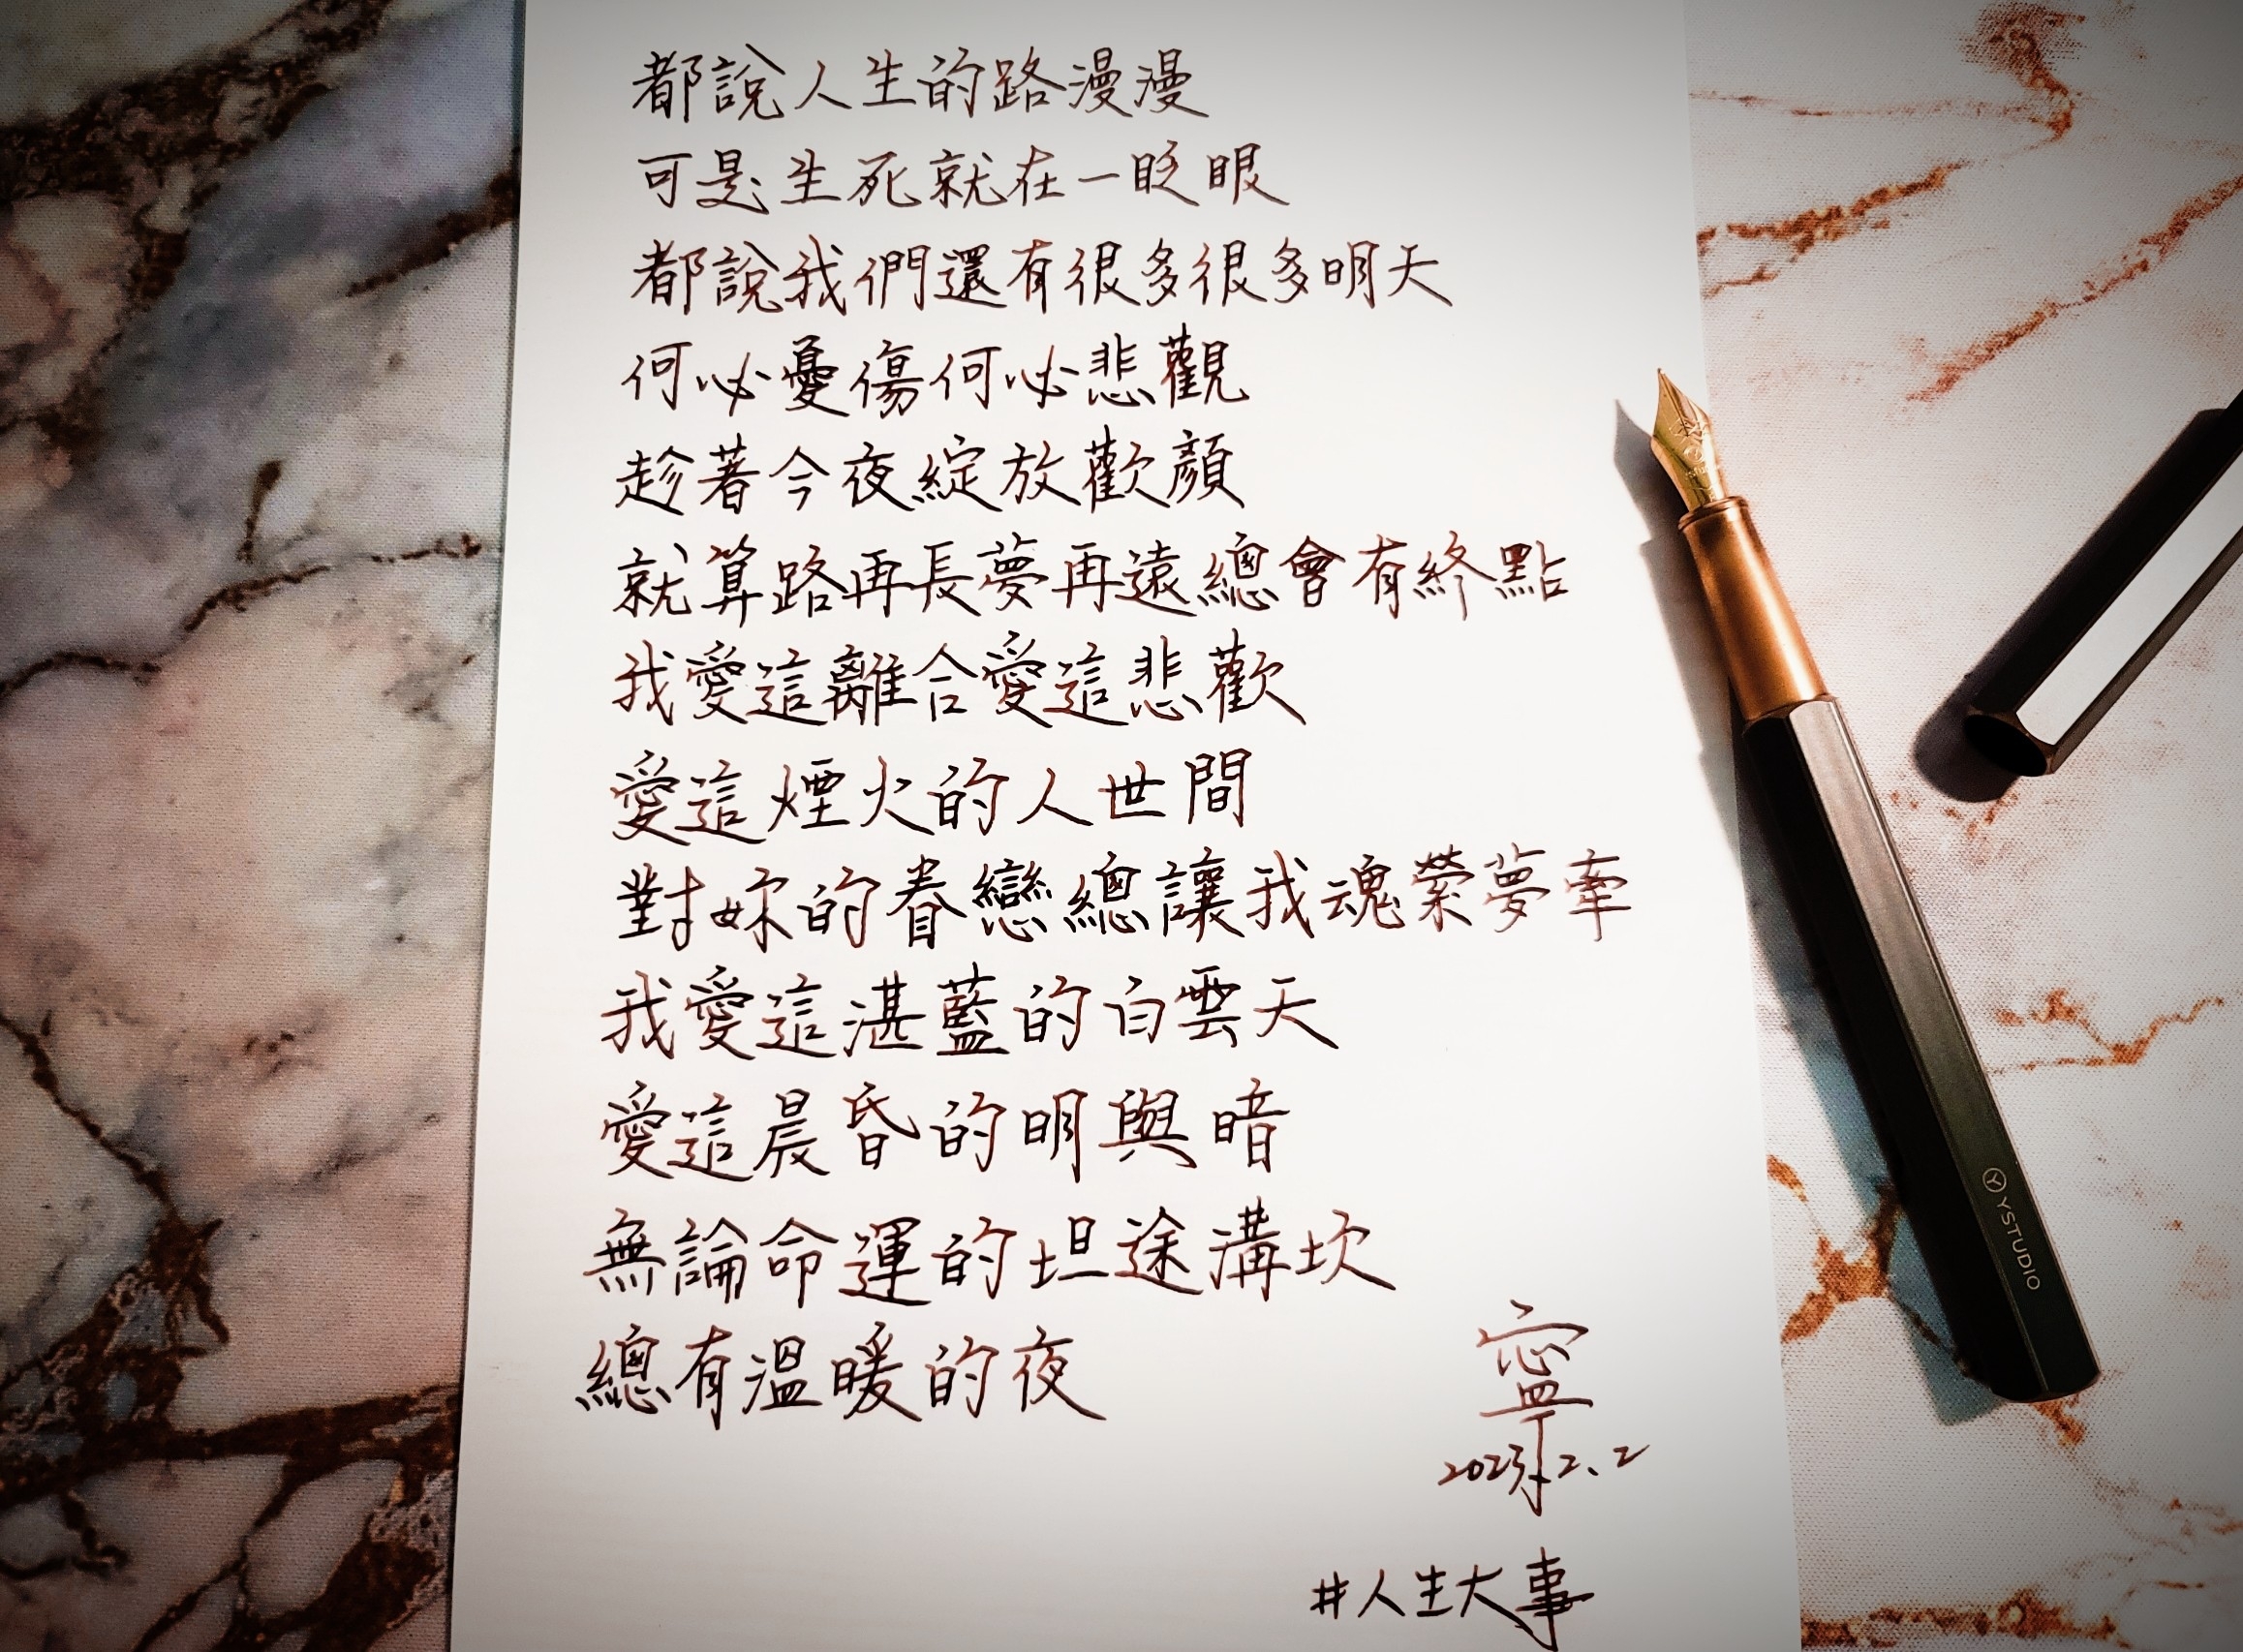 都說人生的路漫漫
可是生死就在一眨眼
都說我們還有很多很多明天
何必憂傷何必悲觀
趁著今夜綻放歡顏
就算路再長夢再遠總會有終點
我愛這離合愛這悲歡
愛這煙火的人世間
對妳的眷戀總讓我魂縈夢牽
我愛這湛藍的白雲天
愛這晨昏的明與暗
無論命運的坦途溝坎
總有溫暖的夜
寧
2023.2.2
#人生大事
YSTUDIO